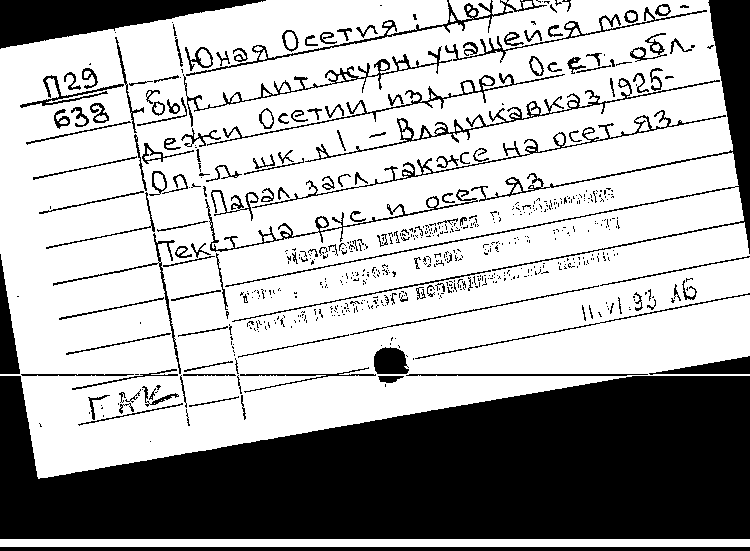 П29
638
Юная Осетия: Двухнед
-быт. и лит. журн. учащейся моло-
дежи Осетии, изд. при Осет. обл.
Оп.-п. шк. №1. - Владикавказ, 1925-
Парал. загл. также на осет. яз.
Текст на рус. и осет. яз.
Перечень имеющихся в библиотеке
годов
каталоге периодических
11.VI.93 ЛБ
ГАК